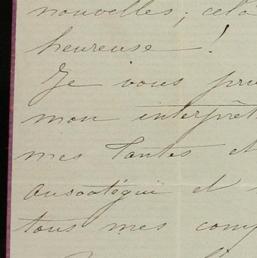 nouvelles; cela
heureuse !
Je vous pri
mon interprèt
mes Tantes et
Ansoatégui et
tous mes comp